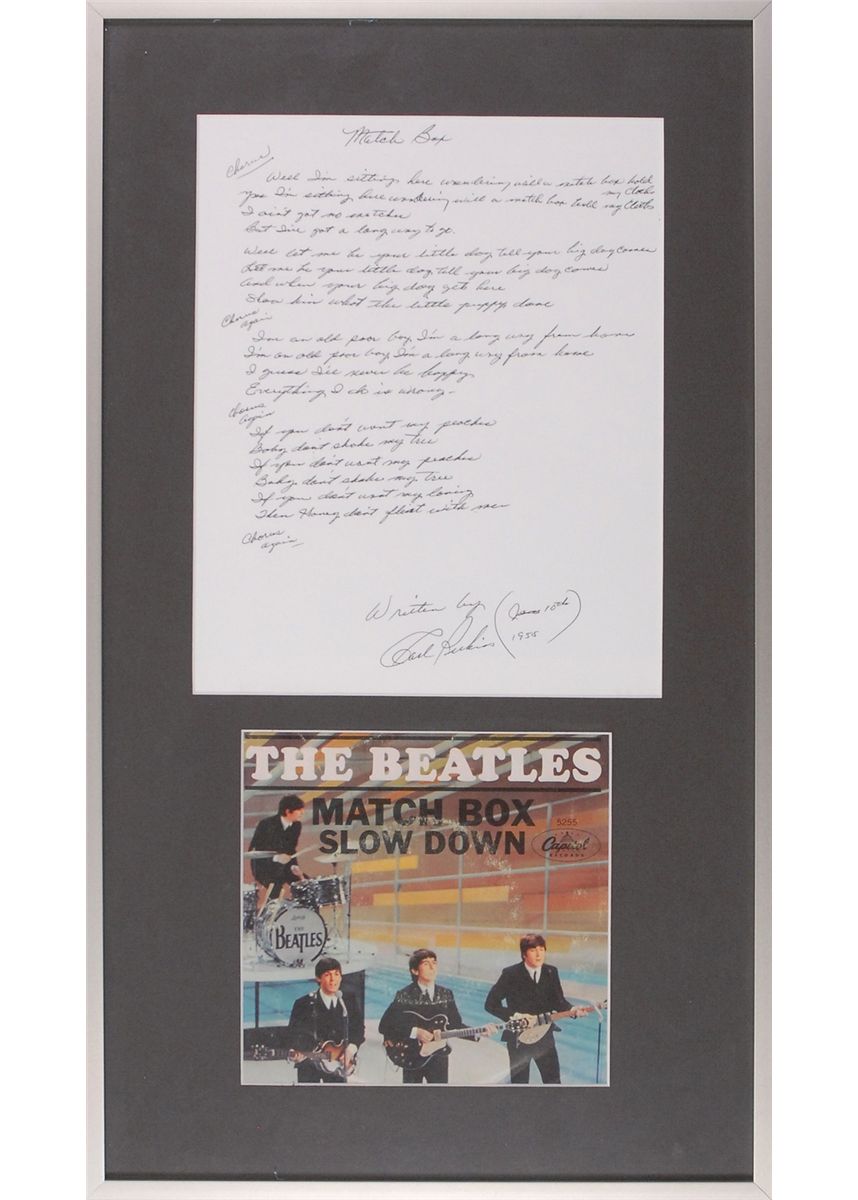 Match Box
Chorus
Well I'm sitting here wondering will a match box hold my Cloths
yes I'm sitting here wondering will a match box hold my Cloths
I ain't got no matches
But I've got a long way to go.
Well let me be your little dog tell your big dog comes
Let me be your little dog tell your big dog comes
And when your big dog gets here
Show him what the little puppy done
Chorus
again
I'm an old poor boy, I'm a long way from home
I'm an old poor boy, I'm a long way from home
I guess I'll never be happy
Everything I do is wrong.
Chorus
again
If you don't want my peaches
Baby don't shake my tree
If you don't want my peaches
Baby don't shake my tree
If you don't want my loving
Then Honey don't flirt with me
Chorus
again
Written by
Carl Perkins
1955
THE BEATLES
MATCH BOX
SLOW DOWN
5255
Capitol
RECORDS
THE
BEATLES